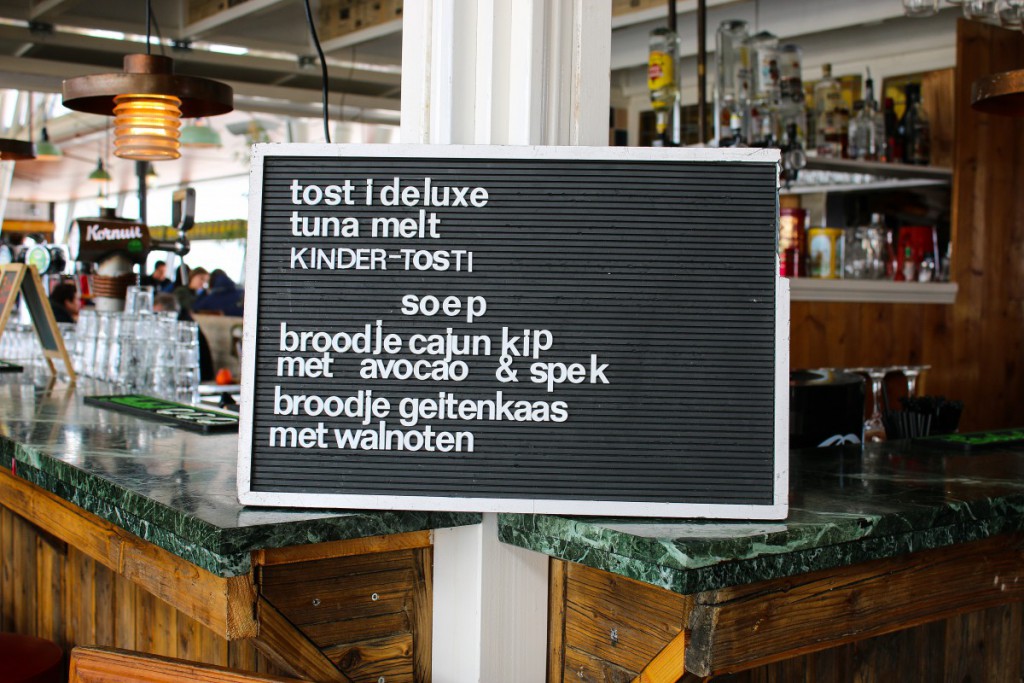 Kornuit
tosti deluxe
tuna melt
KINDER-TOSTI
soep
broodje cajun kip
met avocao & spek
broodje geitenkaas
met walnoten